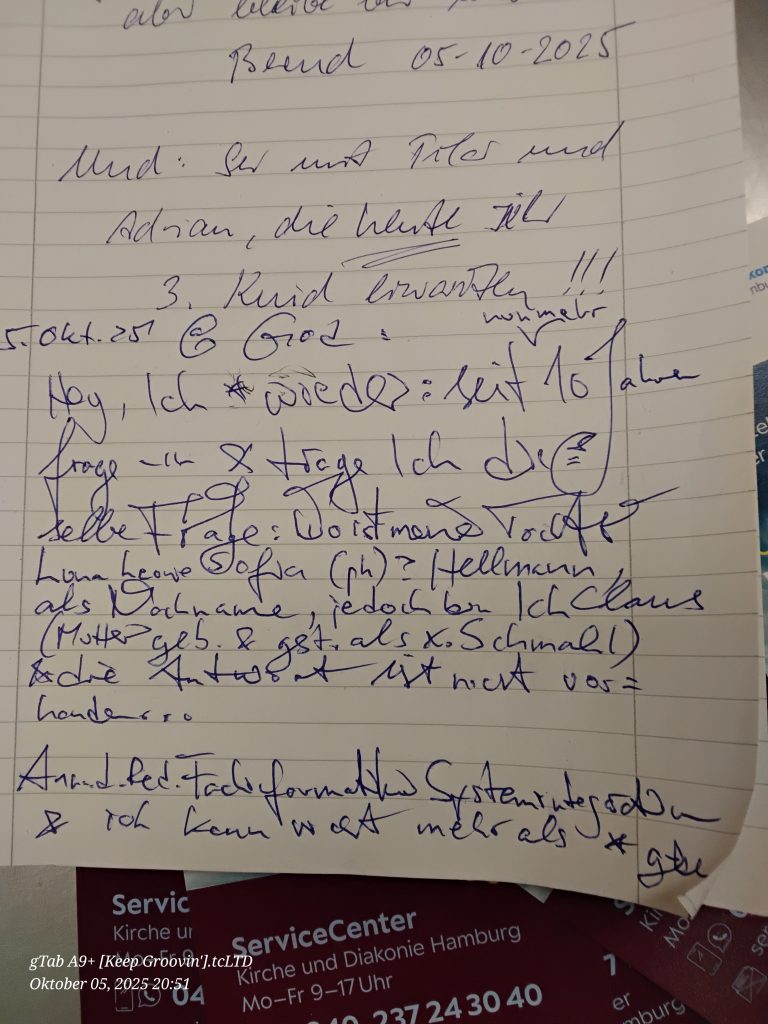 aber bleibe bei
Bernd 05-10-2025
Und: Sei mit und
Adrian, die heute ihr
3. Kind erwarten !!!
5. Okt. 25 @ Gott :
nunmehr
Hey, Ich * wieder: seit 10 Jahren
frage -ich & trage Ich die
selbe Frage: Wo ist meine Tochter
Luna Sofia (ph)? Hellmann,
als Nachname, jedoch bin Ich Claus
(Mutter geb. & gst. als x. Schmahl)
& die Antwort ist nicht vor=
handen...
Anmd. Red. Fachinformatiker Systemintegration
& ich kann weit mehr als *
Servic
Kirche ur
Mo-Fr 9
04
ServiceCenter
Kirche und Diakonie Hamburg
Mo–Fr 9–17 Uhr
040 237 24 30 40
er
mburg
gTab A9+ [Keep Groovin'].tcLTD
Oktober 05, 2025 20:51